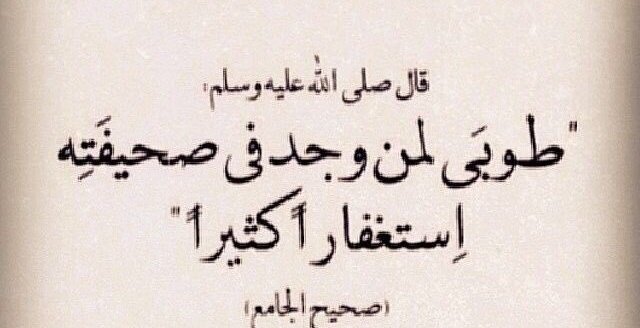 قال صلى الله عليه وسلم:
"طوبَى لمن وجد في صحيفَتِه
اِستغفاراً كثيراً"
(صحيح الجامع)